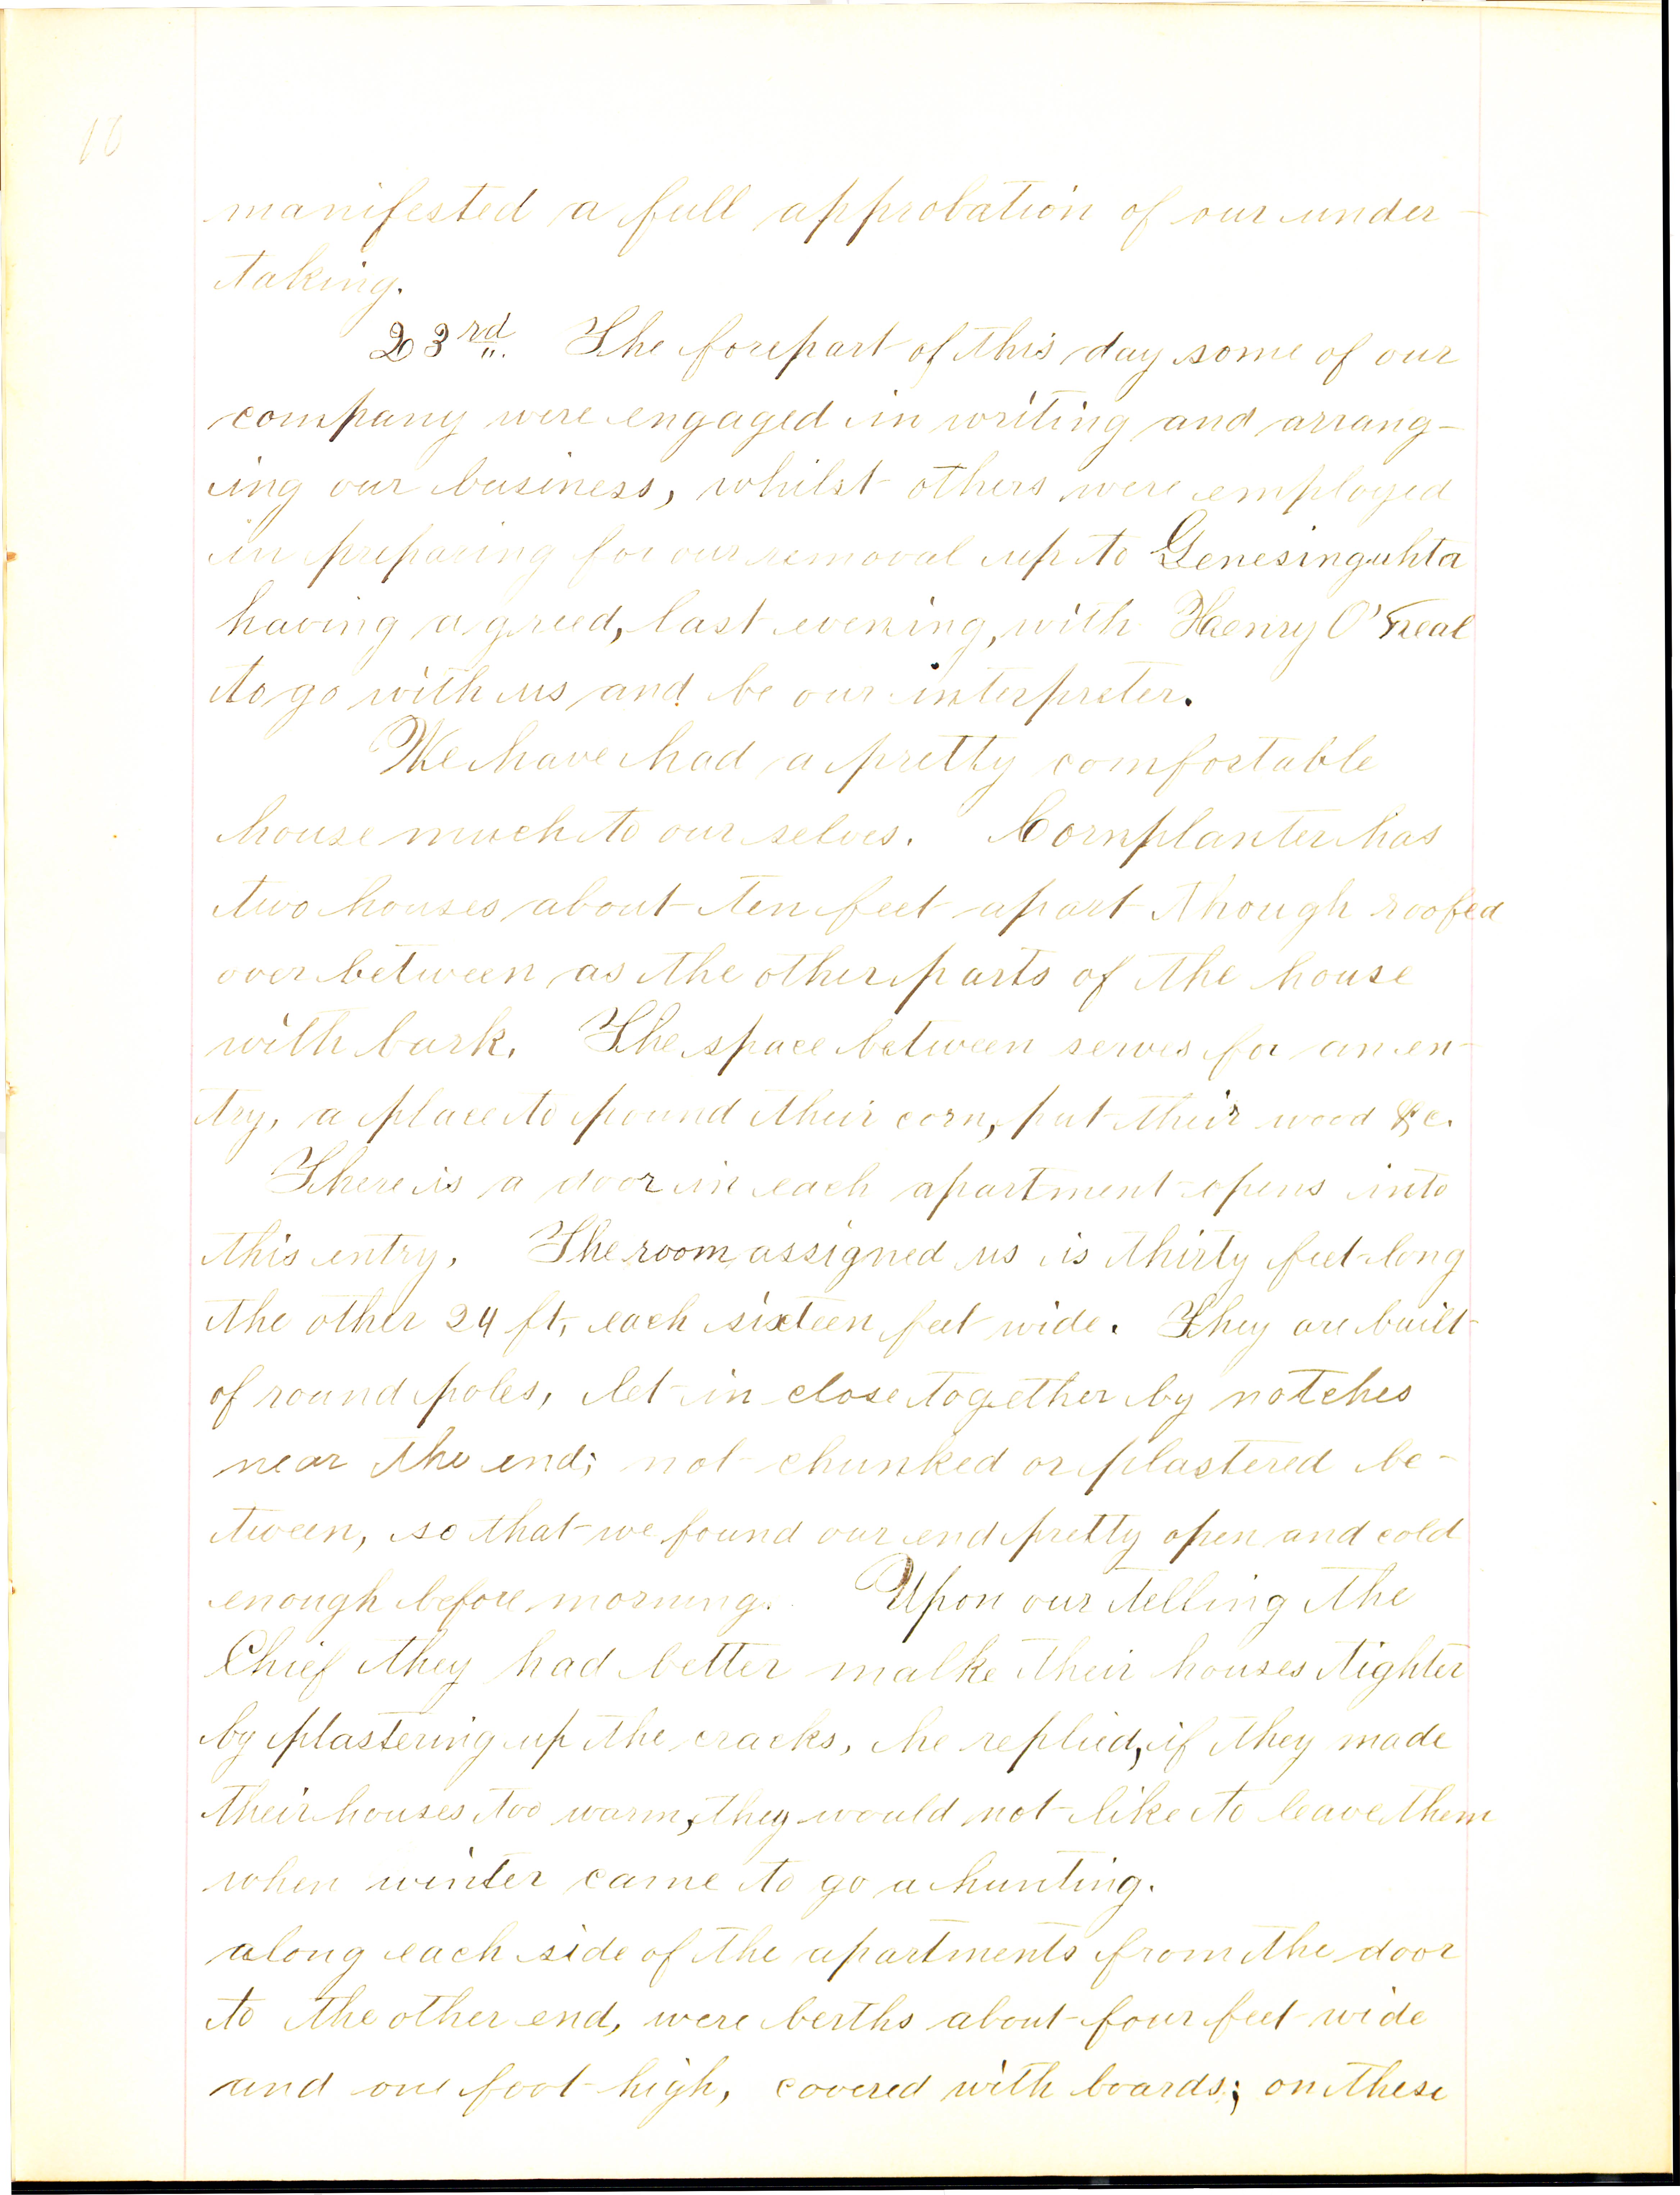 10
manifested a full approbation of our under-
taking.
23rd. The forepart of this day some of our
company were engaged in writing and arrang-
ing our business, whilst others were employed
in preparing for our removal up to Genesinguhta
having agreed, last evening, with Henry O'Neal
to go with us and be our interpreter.
We have had a pretty comfortable
house much to our selves. Cornplanter has
two houses about ten feet apart though roofed
over between as the other parts of the house
with bark. The space between serves for an en-
try, a place to pound their corn, put their wood &c.
There is a door in each apartment opens into
this entry. The room assigned us is thirty feet long
the other 24 ft, each sixteen feet wide. They are built
of round poles, let in close together by notches
near the end; not chunked or plastered be-
tween, so that we found our end pretty open and cold
enough before morning. Upon our telling the
Chief they had better malke their houses tighter
by plastering up the cracks, he replied, if they made
their houses too warm, they would not like to leave them
when winter came to go a hunting.
along each side of the apartments from the door
to the other end, were berths about four feet wide
and one foot high, covered with boards; on these